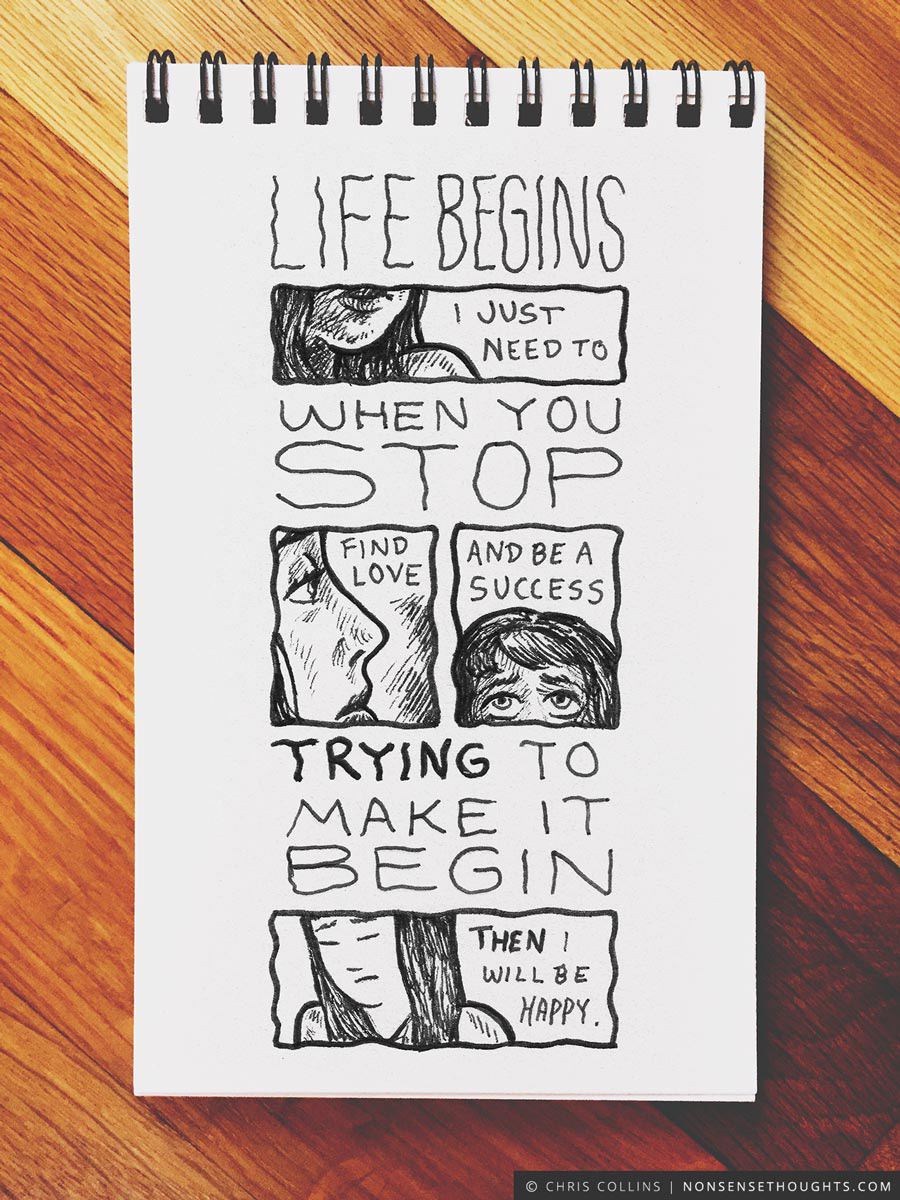 LIFE BEGINS
I JUST
NEED TO
WHEN YOU
STOP
FIND
LOVE
AND BE A
SUCCESS
TRYING TO
MAKE IT
BEGIN
THEN I
WILL BE
HAPPY.
© CHRIS COLLINS | NONSENSETHOUGHTS.COM